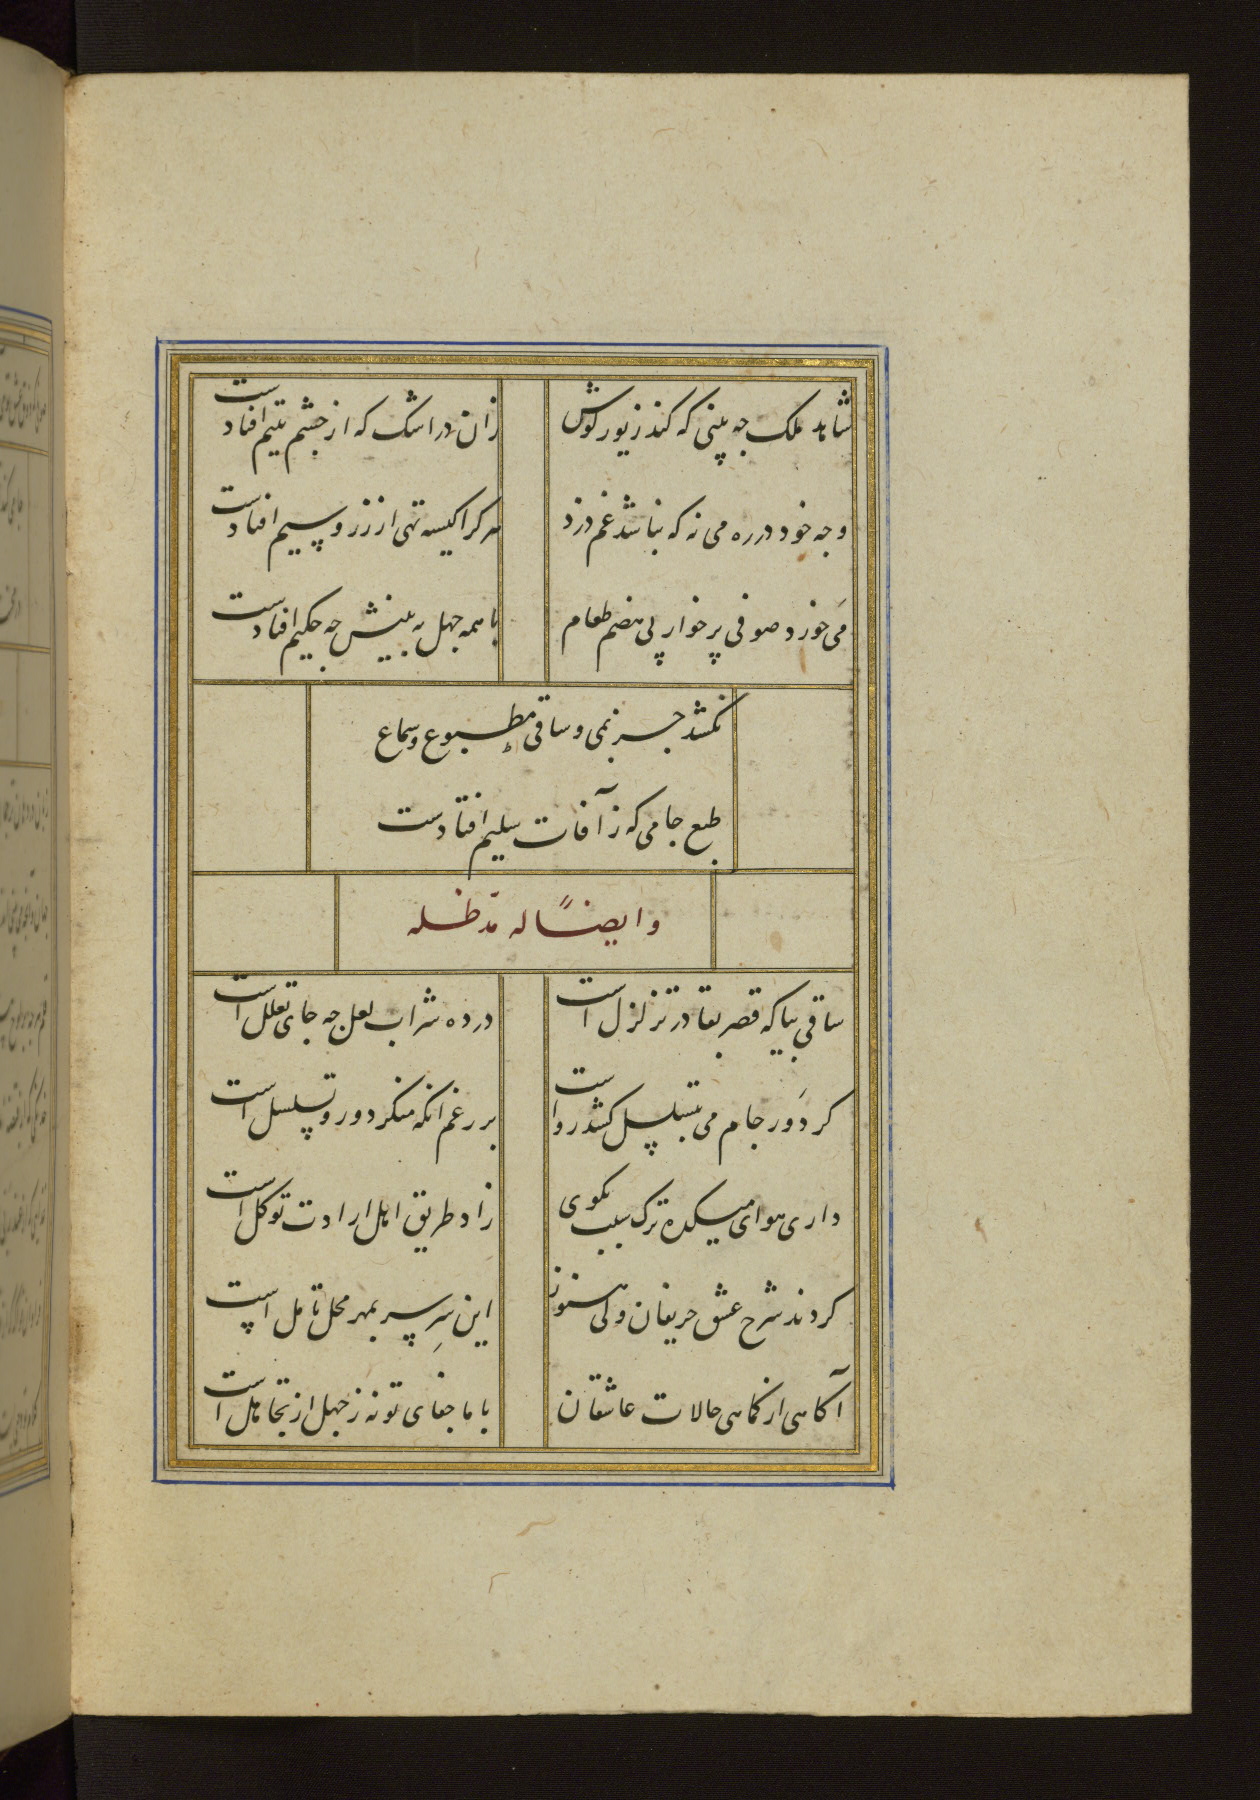 شاهد ملک چه بینی که کند زیور گوش زان در اشک که از چشم یتیم افتادست
وجه خود در ره می نه که نباشد غم دزد هر کرا کیسه تهی از زر و سیم افتادست
می خورد صوفی پرخوار پی هضم طعام با همه جهل به بینش چه حکیم افتادست
نکشد جز بمی و ساقی مطبوع و سماع
طبع جامی که ز آفات سلیم افتادست
وایضاً له مدّ ظله
ساقی بیا که قصر بقا در تزلزل است در ده شراب لعل چه جای تعلل است
کر دَور جام می بتسلسل کشد رواست بر رغم انکه منکر دور و تسلسل است
داری هوای میکده ترک سبب بکوی زاد طریق اهل ارادت توکل است
کردند شرح عشق حریفان ولی هنوز این سِر سر بمهر محل تامل است
آکاهی از کماهی حالات عاشقان با ما جفای تو نه ز جهل از تجاهل است